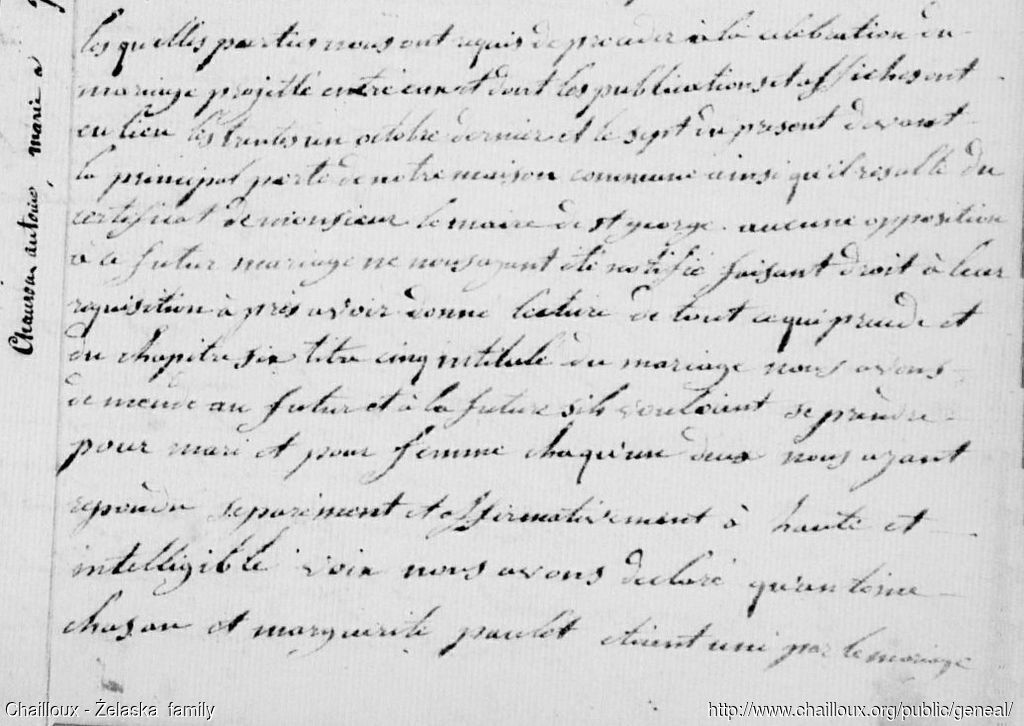 les quelles parties nous ont requis de proceder à la celebration du
mariage projetté entre eux et dont les publications et affiches ont
eu lieu les trentes un octobre dernier et le sept du present devant
la principal porte de notre maison commune ainsi qu'il resulte du
certificat de monsieur le maire de st george. aucune opposition
à ce futur mariage ne nous ayant été notifié faisant droit à leur
requisition après avoir donné lecture de tout ce qui precede et
du chapitre six titre cinq intitulé du mariage nous avons
demendé au futur et à la future s'ils vouloient se prendre
pour mari et pour femme chaqu'un deux nous ayant
repondu separement et affirmativement à haute et
intelligible voix nous avons declaré qu'antoine
chasau et marguerite paulet etoient uni par le mariage
antoine, marié a
Chailloux - Żelaska family
http://www.chailloux.org/public/geneal/